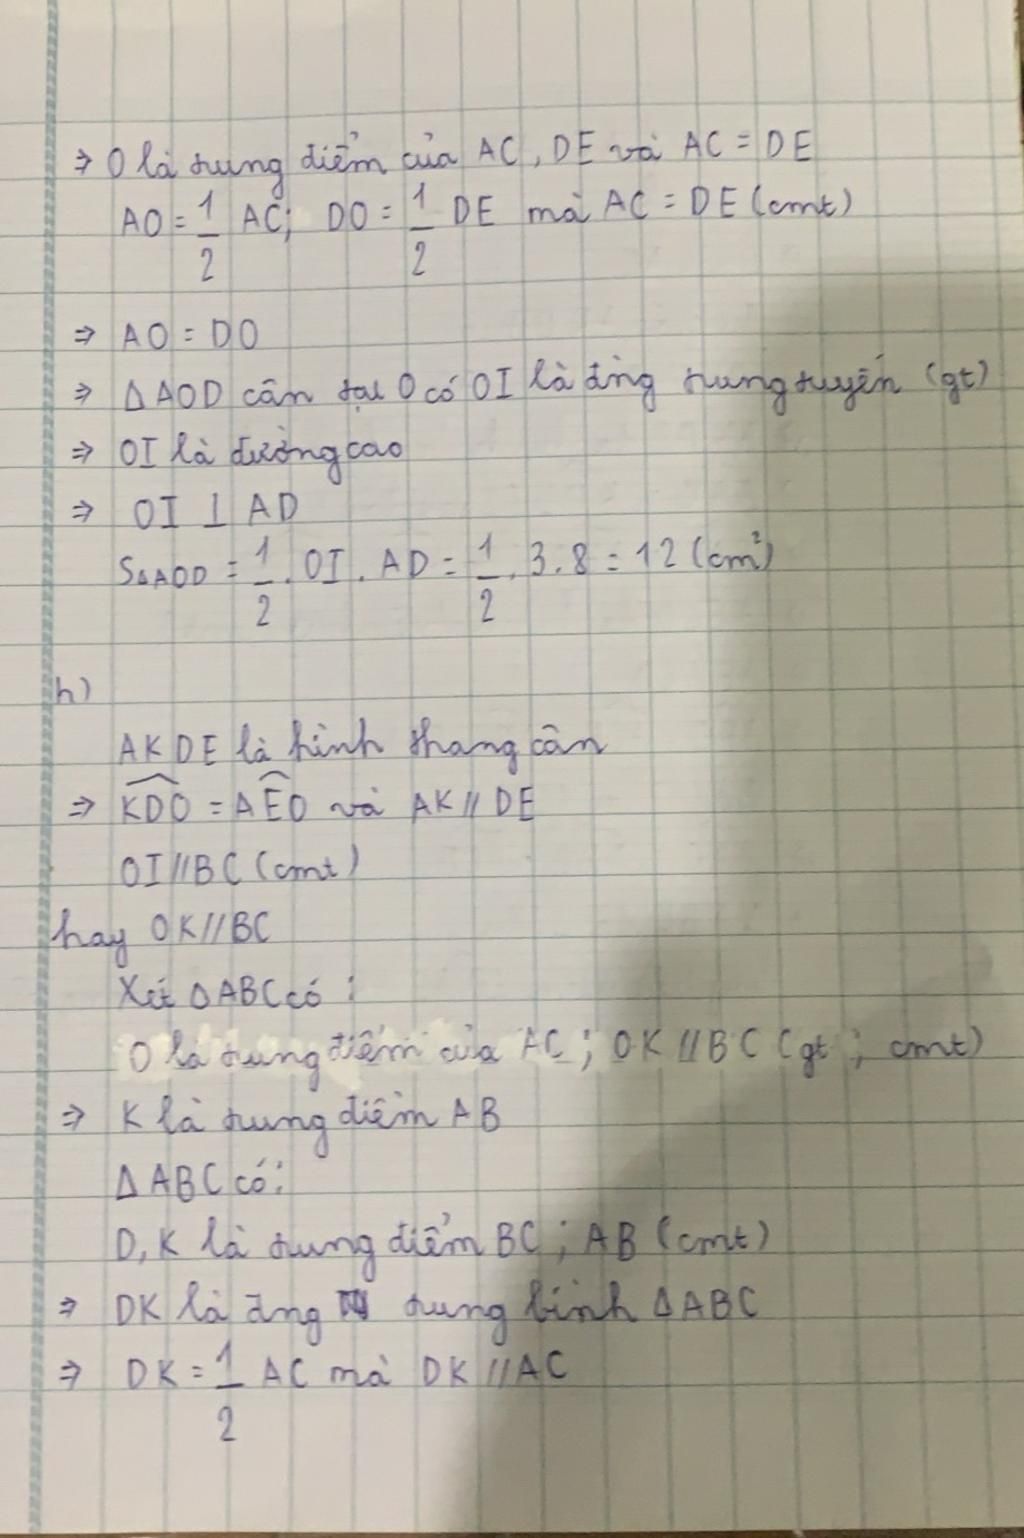 ⇒ O là trung điểm của AC, DE và AC = DE
AO = 1/2 AC; DO = 1/2 DE mà AC = DE (cmt)
⇒ AO = DO
⇒ ΔAOD cân tại O có OI là đng trung tuyến (gt)
⇒ OI là đường cao
⇒ OI ⊥ AD
SΔAOD = 1/2 . OI . AD = 1/2 . 3 . 8 = 12 (cm²)
h)
AKDE là hình thang cân
⇒ \widehat{KDO} = \widehat{AEO} và AK // DE
OI // BC (cmt)
hay OK // BC
Xét ΔABC có :
O là trung điểm của AC ; OK // BC (gt ; cmt)
⇒ K là trung điểm AB
ΔABC có :
D, K là trung điểm BC ; AB (cmt)
⇒ DK là đng trung bình ΔABC
⇒ DK = 1/2 AC mà DK // AC